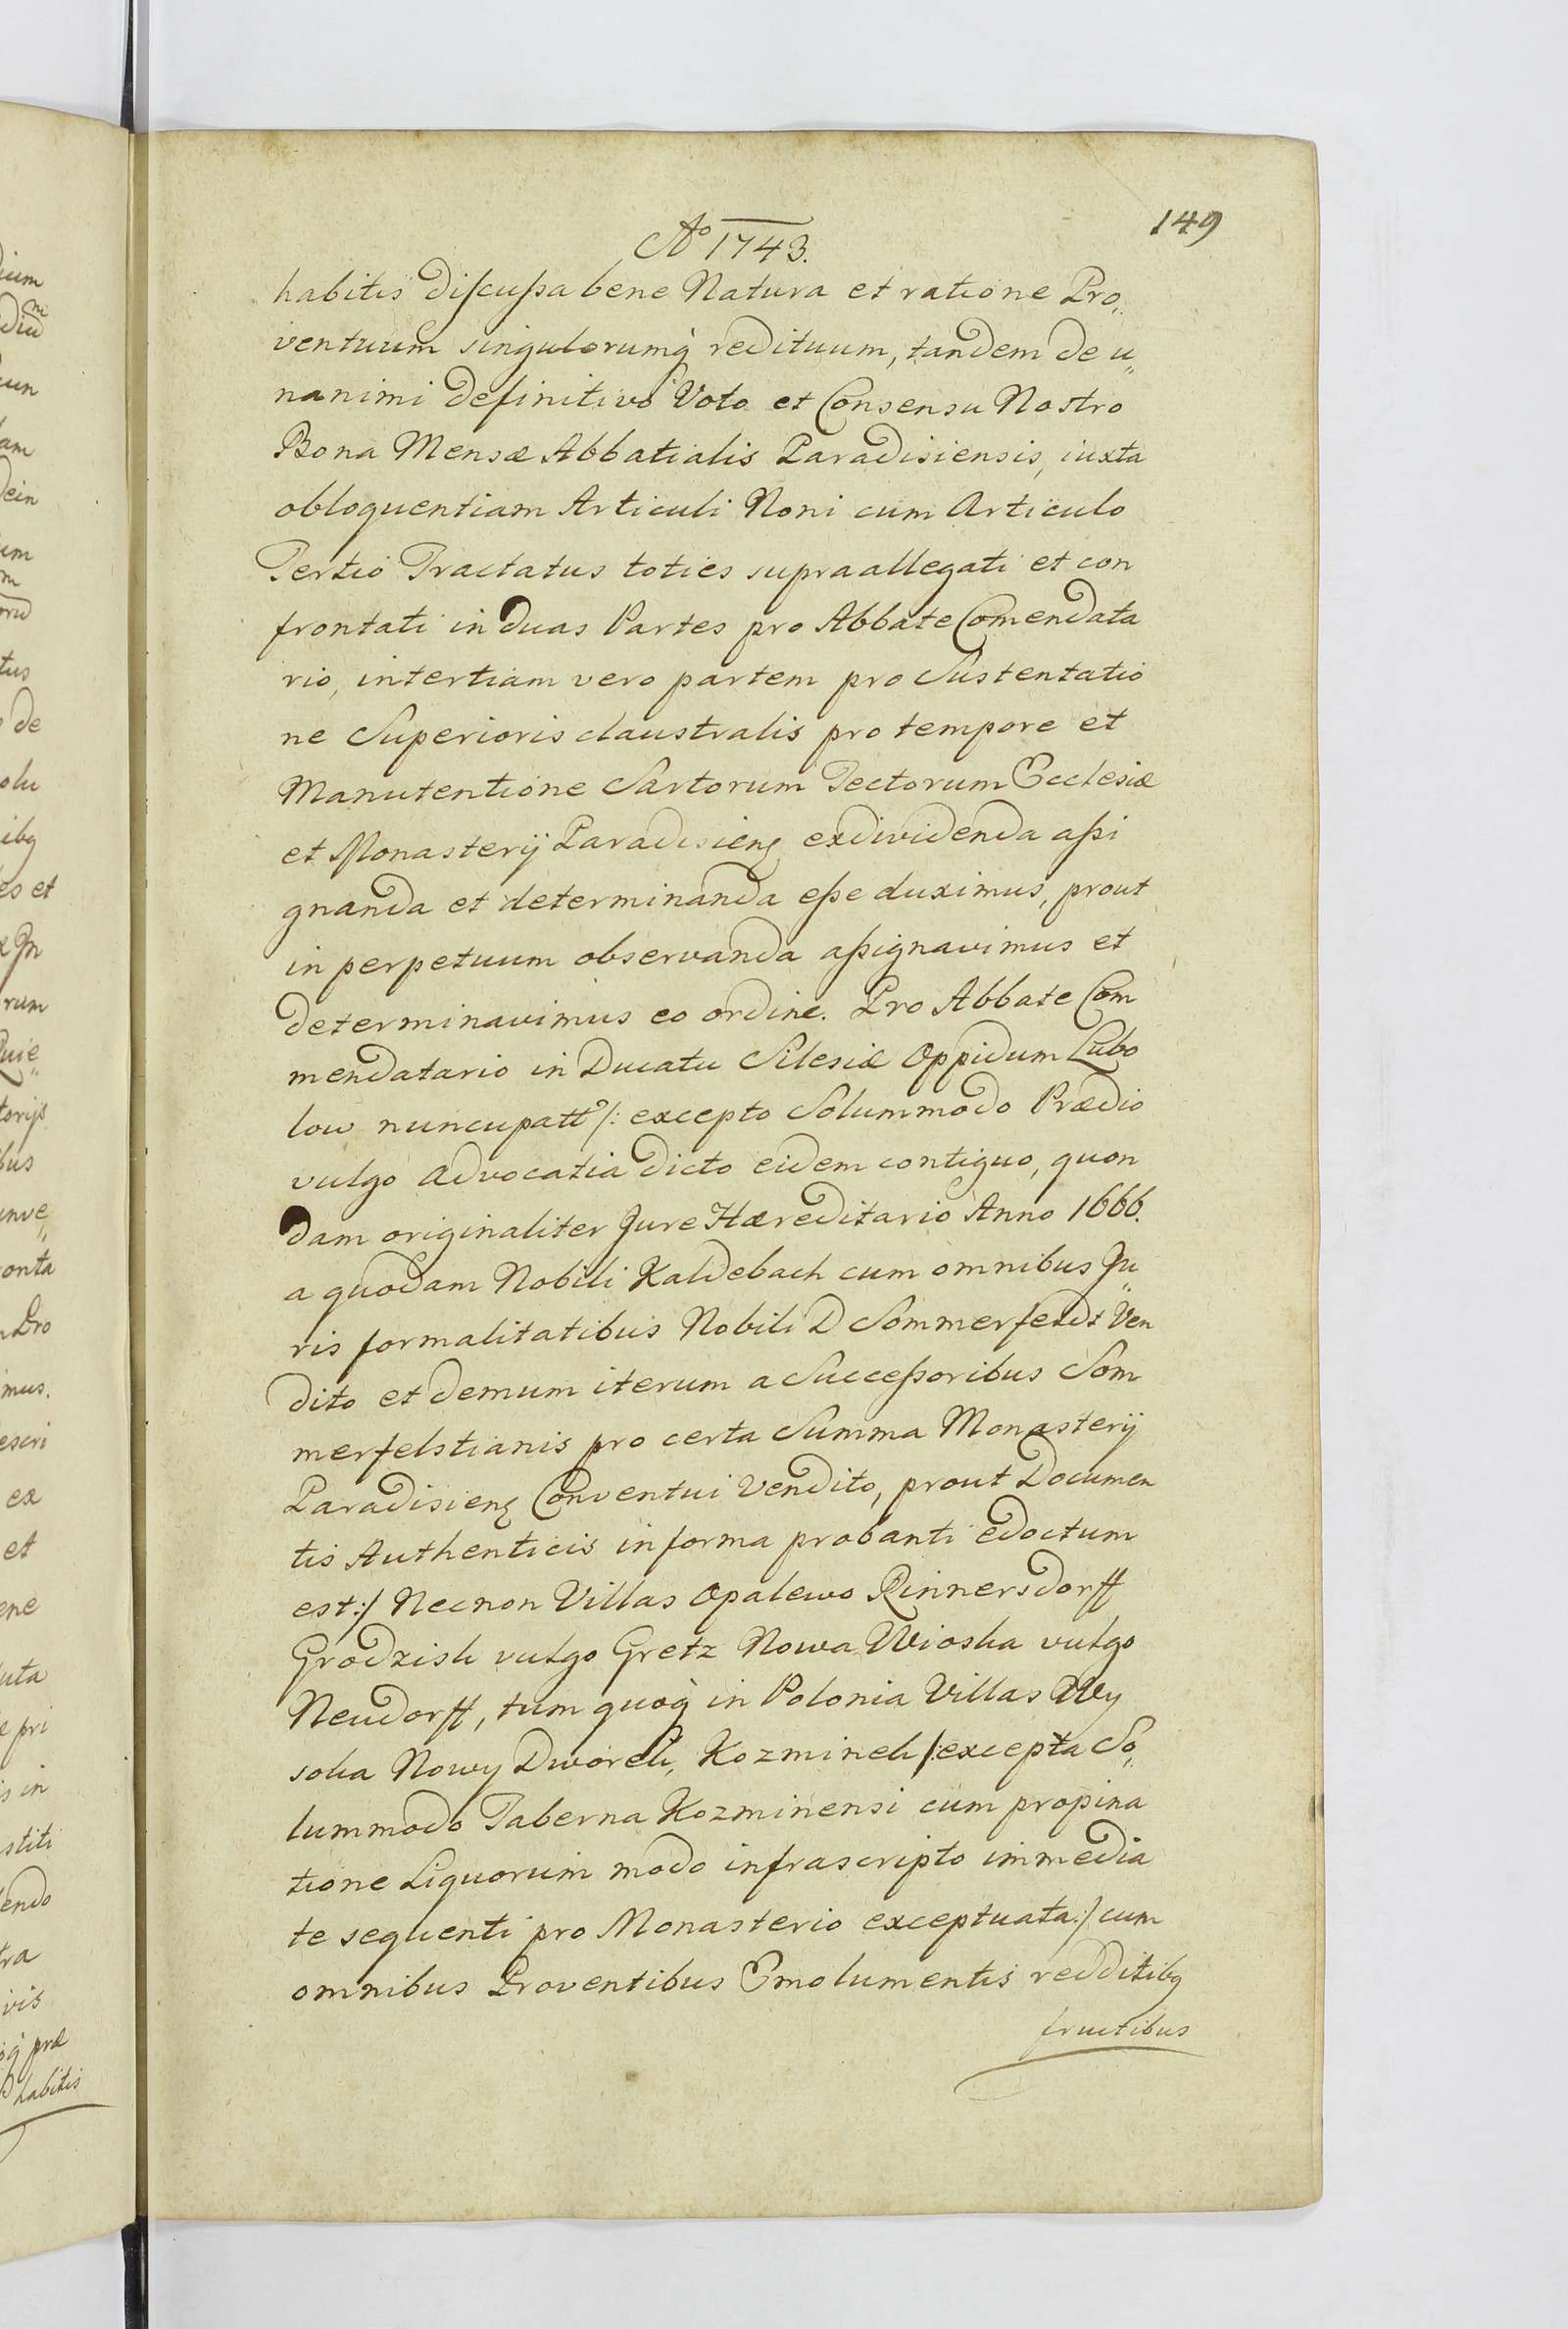 149
Aº 1743.
habitis discussa bene Natura et ratione Pro„
ventuum singulorumq̀ redituum, tandem de u„
nanimi definitivo Voto et Consensu Nostro
Bona Mensæ Abbatialis Paradisiensis, iuxta
obloquentiam Articuli Noni cum Articulo
Tertio Tractatus toties supraallegati et con
frontati in duas Partes pro Abbate Comendata
rio, in tertiam vero partem pro Sustentatio
ne Superioris claustralis pro tempore et
Manutentione Sartorum Tectorum Ecclesiæ
et Monasterij Paradisienꝭ exdividenda assi
gnanda et determinanda esse duximus, prout
in perpetuum observanda assignavimus et
determinavimus eo ordine. Pro Abbate Com
mendatario in Ducatu Silesiæ Oppidum Lubo
low nuncupatt /: excepto Solummodo Prædio
vulgo Advocatia dicto eidem contiguo, quon
dam originaliter Jure Hæreditario Anno 1666.
a quodam Nobili Kaldebach cum omnibus Ju„
ris formalitatibus Nobili D Sommerfeldt Ven
dito et demum iterum a Successoribus Som
merfelstianis pro certa Summa Monasterij
Paradisienꝭ Conventui Vendito, prout Documen
tis Authenticis in forma probanti edoctum
est :/ Necnon Villas Opalewo Rinnersdorff
Grodzisk vulgo Gretz Nowa Wioska vulgo
Neudorff, tum quoq̀ in Polonia Villas Wy
soka Nowy Dworek, Kozminek /: excepta So„
lummodo Taberna Kozminensi cum propina
tione Liquorum modo infrascripto immedia
te sequenti pro Monasterio exceptuata :/ cum
omnibus Proventibus Emolumentis redditibꝰ
fructibus